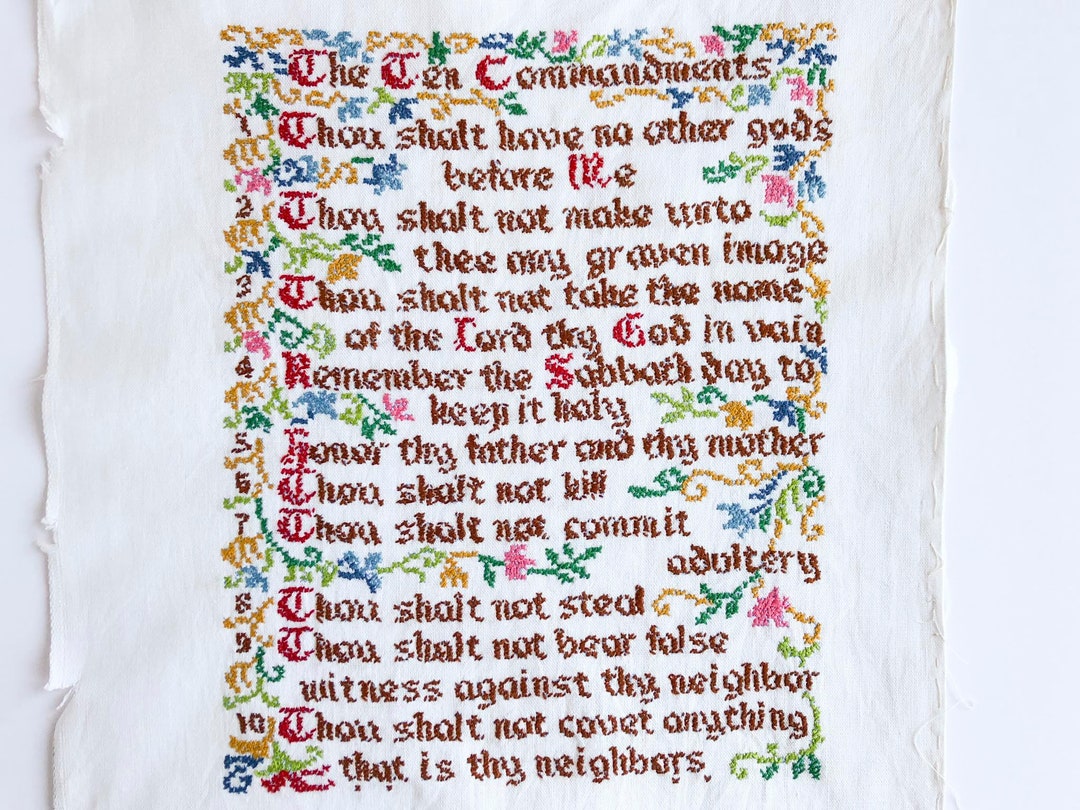 The Ten Commandments
1 Thou shalt have no other gods
before Me
2 Thou shalt not make unto
thee any graven image
3 Thou shalt not take the name
of the Lord thy God in vain
4 Remember the Sabbath day to
keep it holy
5 Honor thy father and thy mother
6 Thou shalt not kill
7 Thou shalt not commit
adultery
8 Thou shalt not steal
9 Thou shalt not bear false
witness against thy neighbor
10 Thou shalt not covet anything
that is thy neighbors.